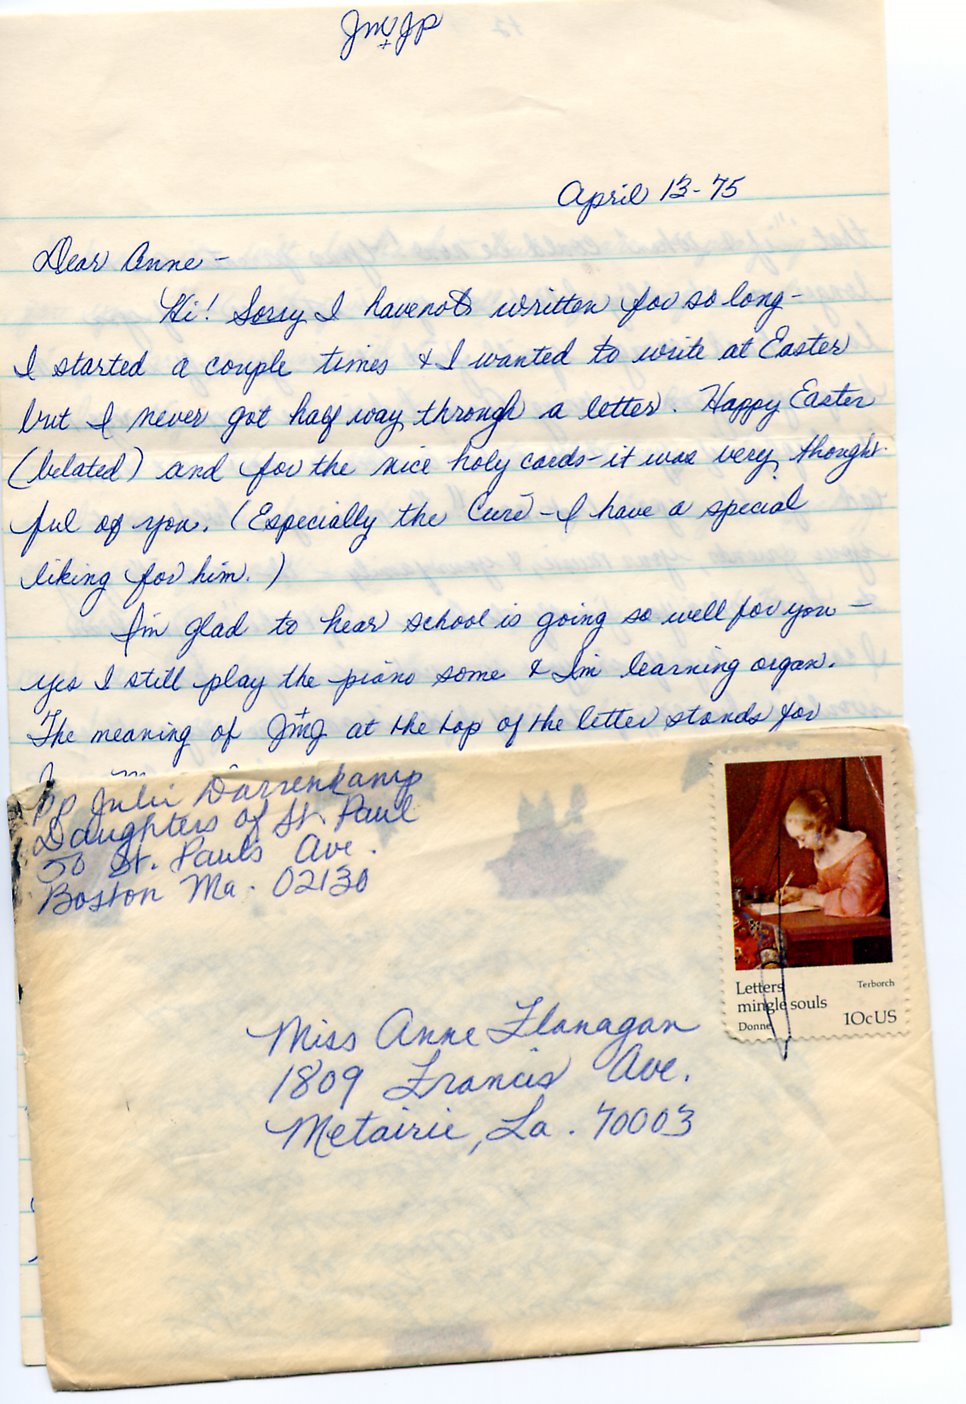 JMJP
+
April 13-75
Dear Anne -
Hi! Sorry I havenot written for so long -
I started a couple times & I wanted to write at Easter
but I never got half way through a letter. Happy Easter
(belated) and for the nice holy cards - it was very thought-
ful of you. (Especially the Curé - I have a special
liking for him.)
I'm glad to hear school is going so well for you -
yes I still play the piano some & I'm learning organ.
The meaning of JMJ at the top of the letter stands for
pp Julie Darrenkamp
Daughters of St. Paul
50 St. Pauls Ave.
Boston Ma. 02130
Letters
mingle souls
Donne
Terborch
10c US
Miss Anne Flanagan
1809 Francis Ave.
Metairie, La. 70003